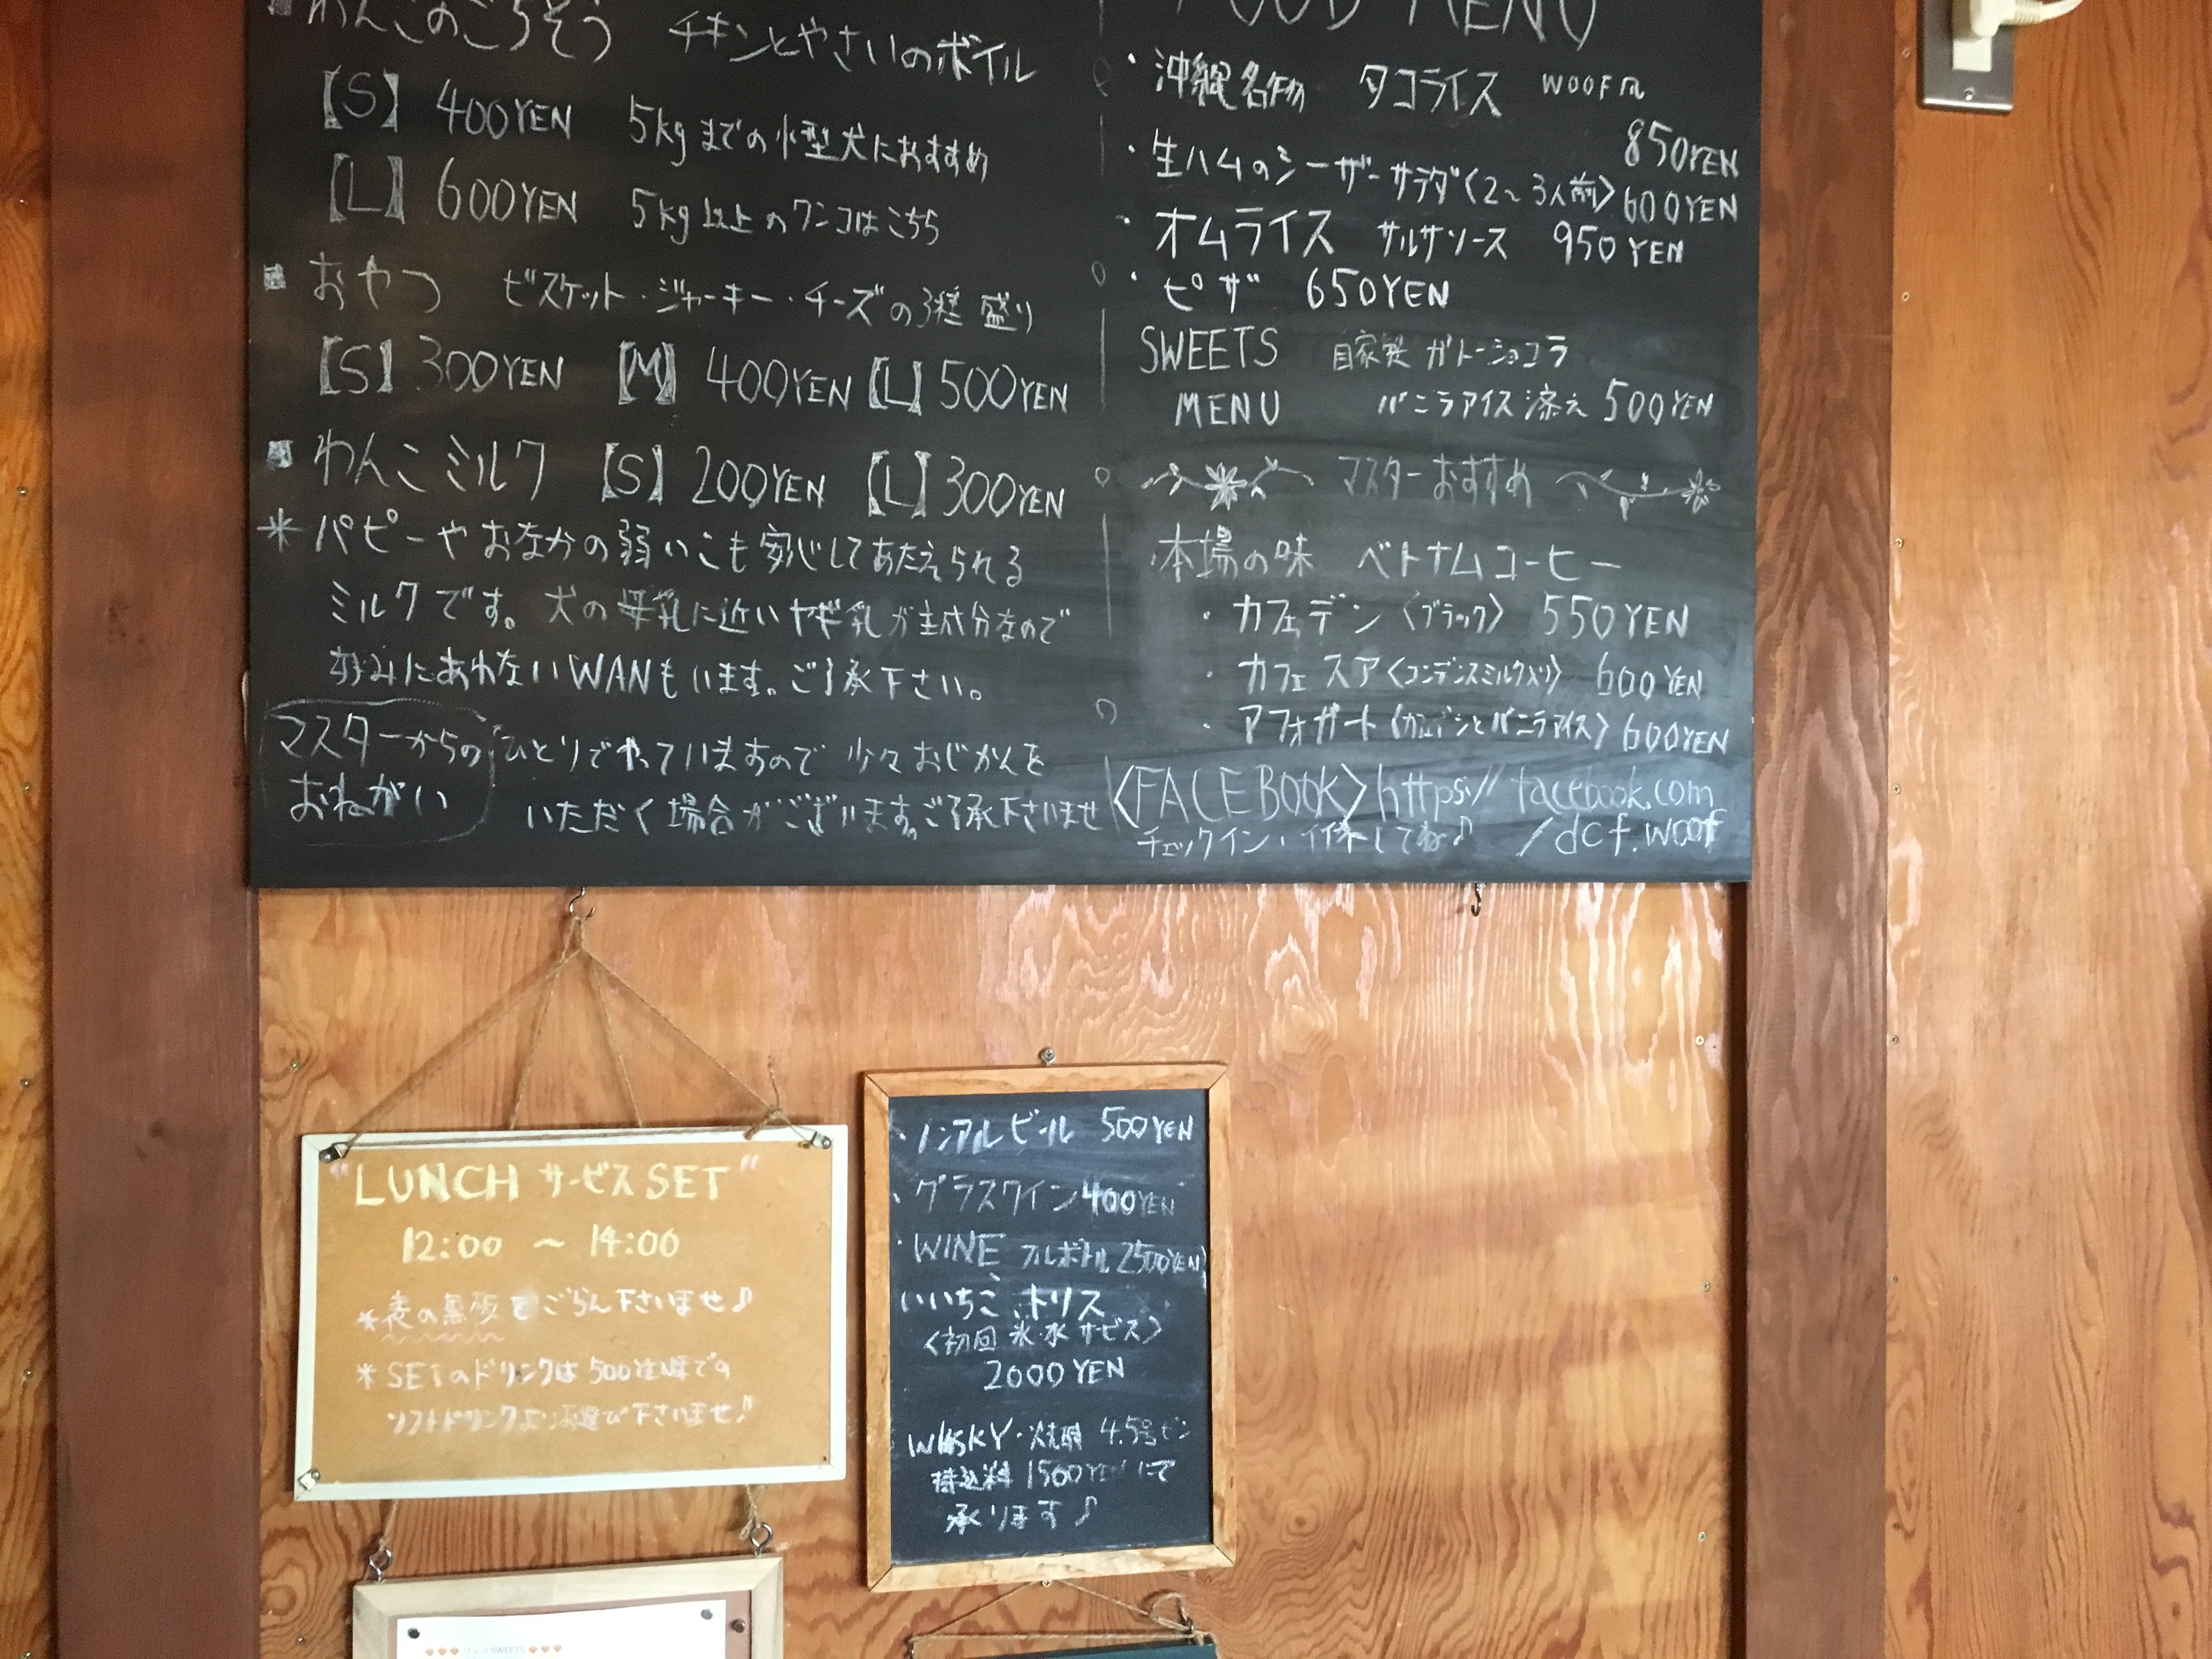 わんこのごちそう チキンとやさいのボイル
【S】 400YEN 5kgまでの小型犬におすすめ
【L】 600YEN 5kg以上のワンコはこちら
おやつ ビスケット・ジャーキー・チーズの3種盛り
【S】300YEN 【M】400YEN 【L】500YEN
わんこミルク 【S】200YEN 【L】300YEN
* パピーやおなかの弱いこも安心してあたえられる
ミルクです。犬の母乳に近いヤギ乳が主成分なので
好みにあわないWANもいます。ご了承下さい。
マスターからの
おねがい
ひとりでやっていますので 少々おじかんを
いただく場合がございます。ご了承下さいませ
FOOD MENU
・沖縄名物 タコライス WOOF風
850YEN
・生ハムのシーザーサラダ〈2〜3人前〉600YEN
・オムライス サルサソース 950YEN
・ピザ 650YEN
SWEETS 自家製 ガトーショコラ
MENU バニラアイス添え 500YEN
マスターおすすめ
本場の味 ベトナムコーヒー
・カフェデン〈ブラック〉 550YEN
・カフェスア〈コンデンスミルク入り〉 600YEN
・アフォガート〈カフェデンとバニラアイス〉600YEN
〈FACEBOOK〉https://facebook.com
チェックイン・イイネしてね♪ /dcf.woof
"LUNCH サービスSET"
12:00 〜 14:00
*表の黒板をごらん下さいませ♪
* SETのドリンクは500YEN迄の
ソフトドリンクよりお選び下さいませ♪
・ノンアルビール 500YEN
・グラスワイン400YEN
・WINE フルボトル2500YEN
いいちこ、トリス
〈初回 氷・水 サービス〉
2000YEN
WISKY・焼酎 4.5号ビン
持込料 1500YENにて
承ります♪
ワンコ SWEETS